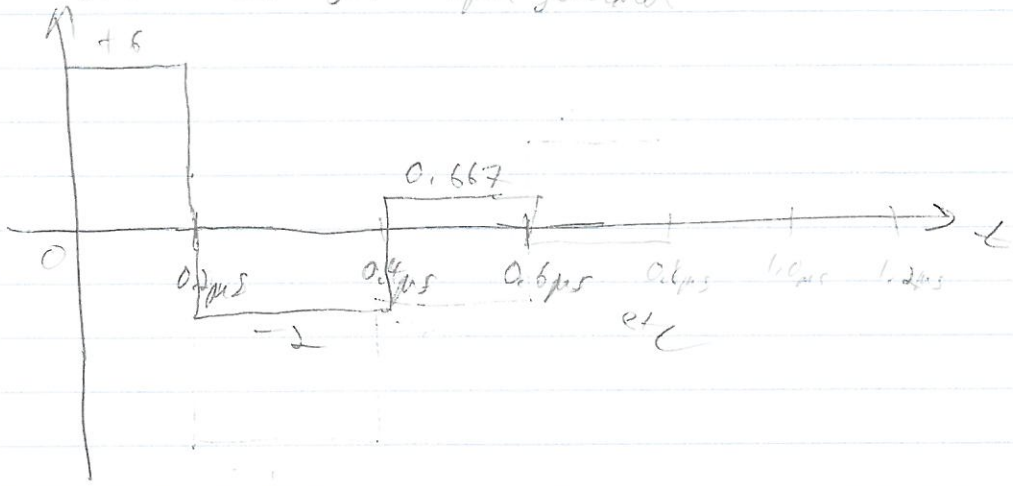 + 6
0.667
t
0
0.2μs 0.4μs 0.6μs 0.8μs 1.0μs 1.2μs
-2
etc